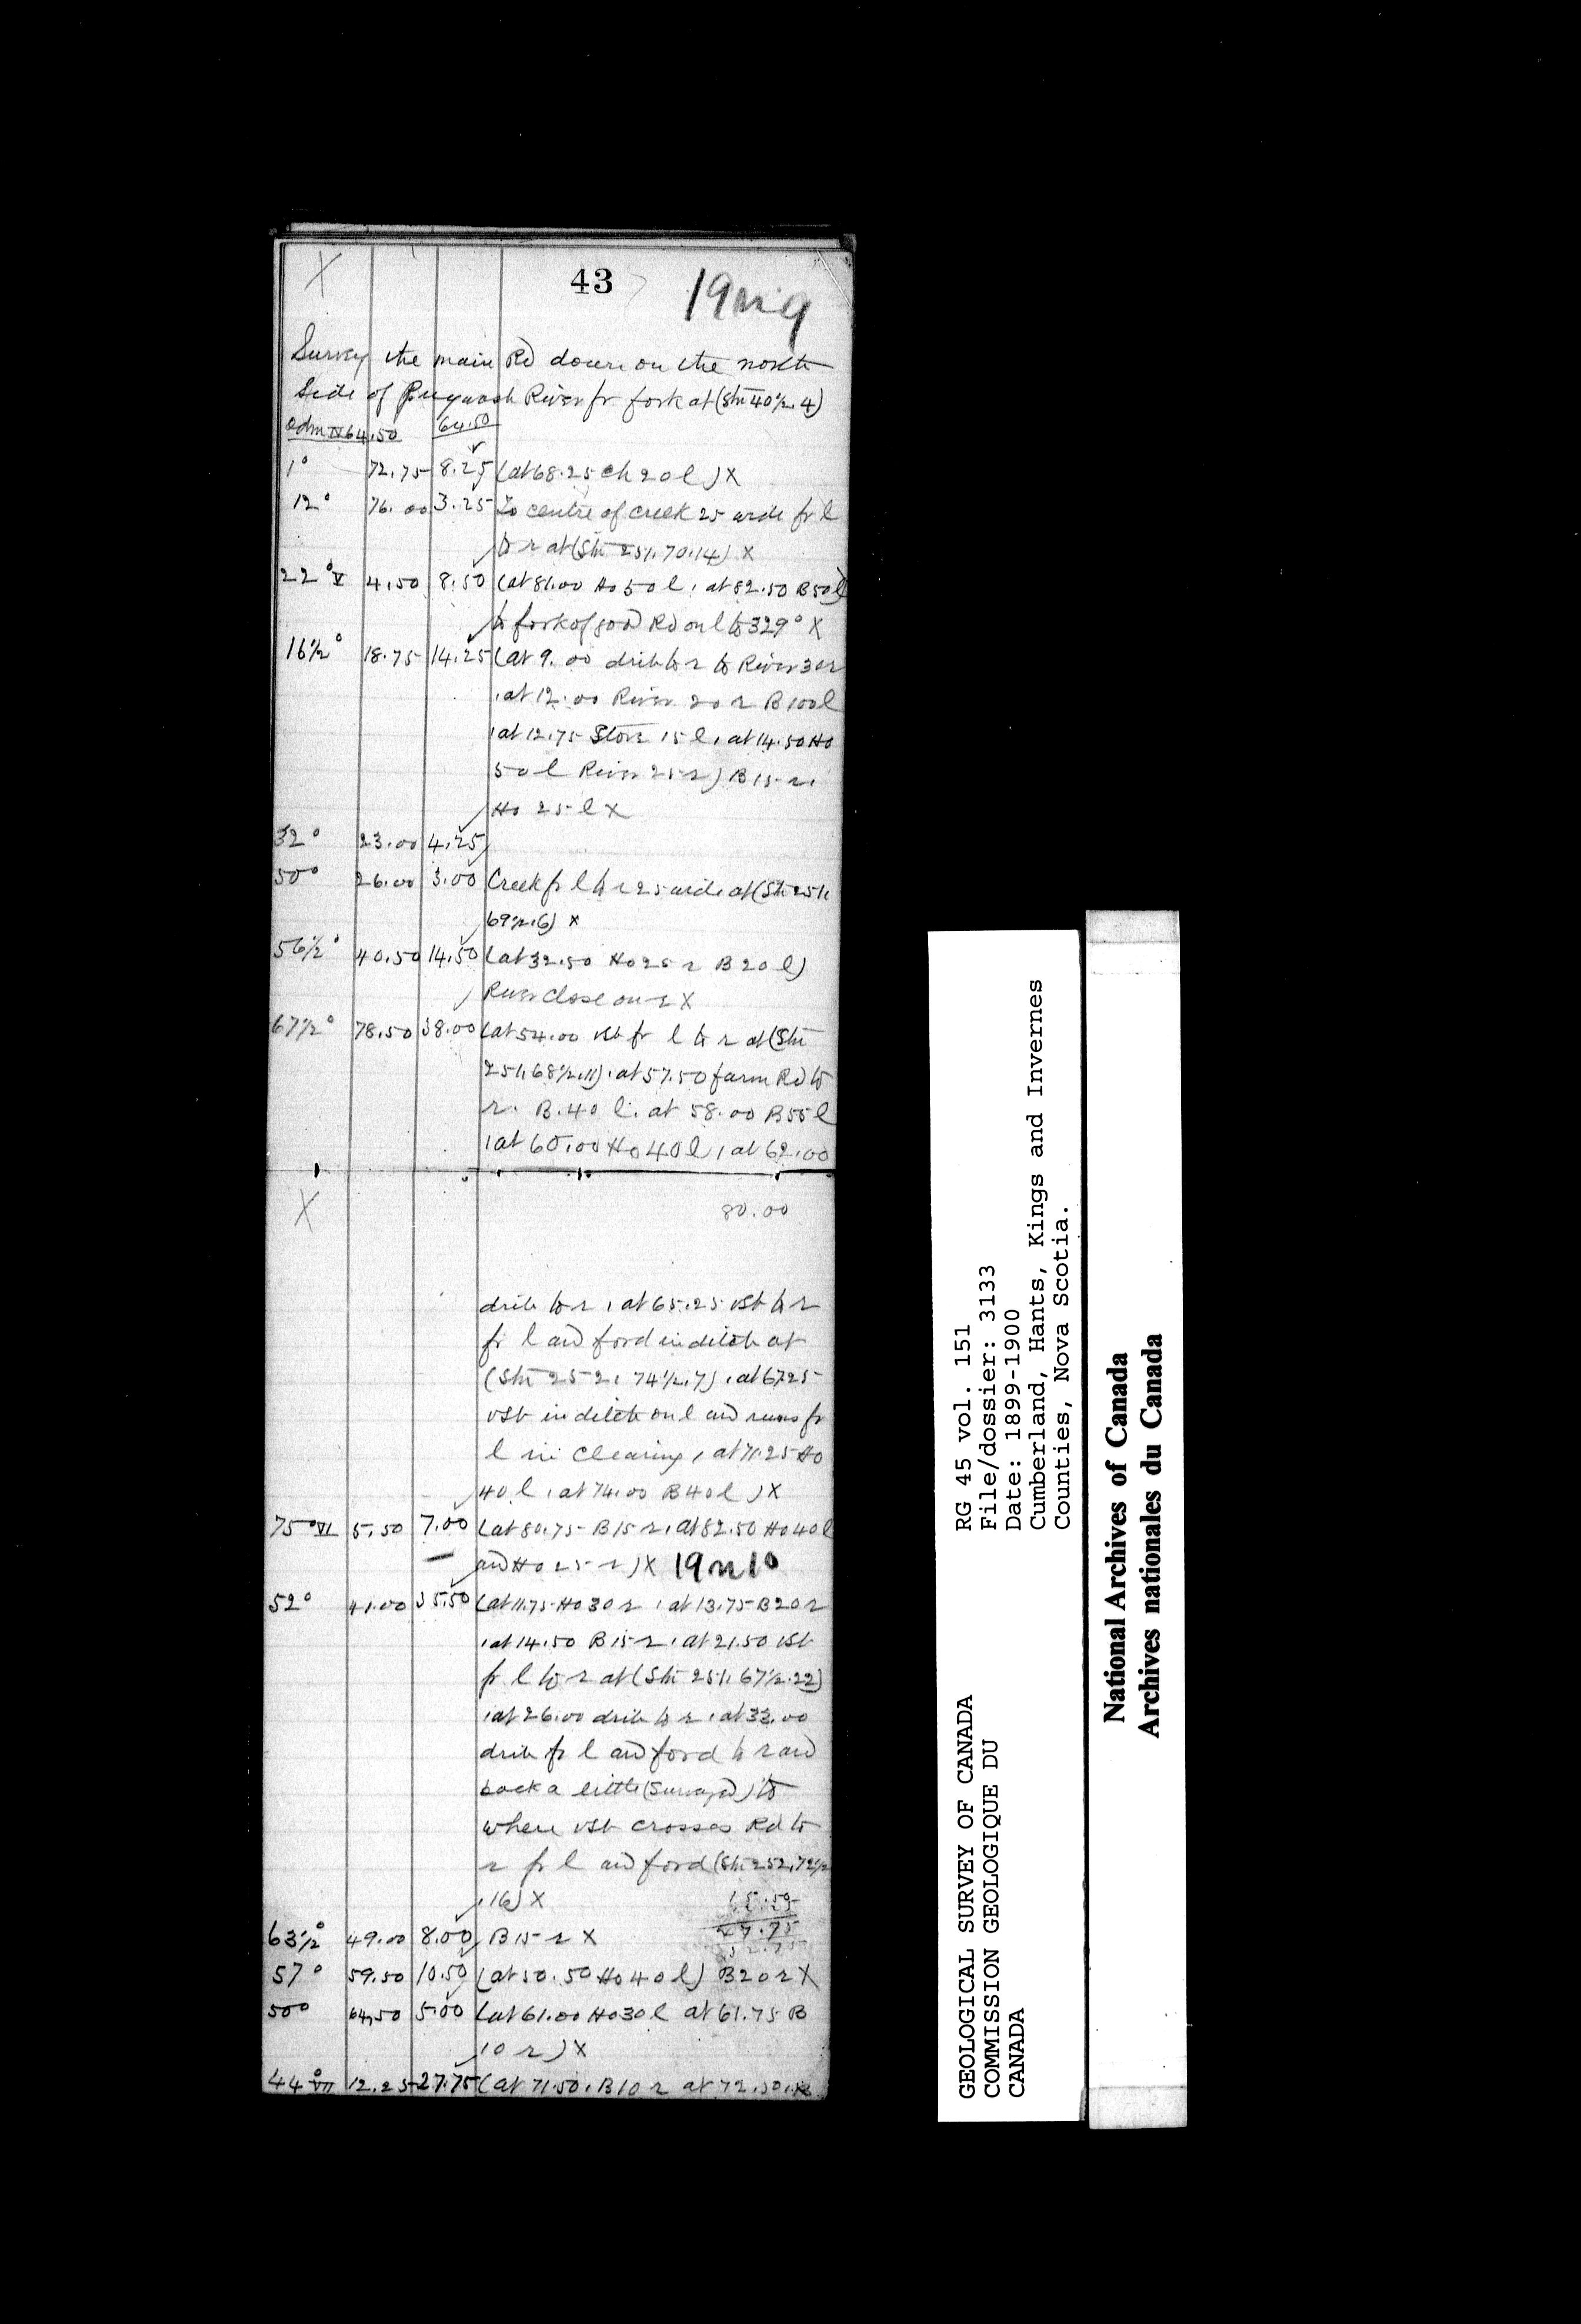 X
43
19n9
Survey the main Rd down on the north
Side of Pugwash River fr fork at (Stn 40½, 4)
Odm 64.50 64.50
1° 72.75 8.25 (at 68.25 ch 20 l) X
12° 76.00 3.25 To centre of creek 25 wide fr l
to r at (Stn 251, 70, 14) X
22° V 4.50 8.50 (at 81.00 Ho 50 l, at 82.50 B 50 l)
to fork of good Rd on l to 329° X
16½° 18.75 14.25 (at 9.00 drib to r to River 30 r
, at 12.00 River 20 r B 100 l
, at 12.75 Store 15 l, at 14.50 Ho
50 l River 25 r) B 15 r,
Ho 25 l X
32° 23.00 4.25
50° 26.00 3.00 Creek fr l to r 25 wide at (Stn 251,
69½, 6) X
56½° 40.50 14.50 (at 32.50 Ho 25 r B 20 l)
River close on r X
67½° 78.50 38.00 (at 54.00 vsb fr l to r at (Stn
251, 68½, 11), at 57.50 farm Rd to
r. B. 40 l. at 58.00 B 55 l
, at 60.00 Ho 40 l, at 62.00
X
80.00
drib to r, at 65.25 vsb to r
fr l and ford in ditch at
(Stn 252, 74½, 7), at 67.25
vsb in ditch on l and runs fr
l in clearing, at 71.25 Ho
40 l, at 74.00 B 40 l) X
75° VI 5.50 7.00 (at 80.75 B 15 r, at 82.50 Ho 40 l
and Ho 25 r) X 19n10
52° 41.00 35.50 (at 11.75 Ho 30 r, at 13.75 B 20 r
, at 14.50 B 15 r, at 21.50 vsb
fr l to r at (Stn 251, 67½, 22)
, at 26.00 drib to r, at 33.00
drib fr l and ford to r and
back a little (Surveyed) to
where vsb crosses Rd to
r fr l and ford (Stn 252, 72½
, 16) X
63½° 49.00 8.00 B 15 r X 27.75
57° 59.50 10.50 (at 50.50 Ho 40 l) B 20 r X
50° 64.50 5.00 (at 61.00 Ho 30 l at 61.75 B
10 r) X
44° VII 12.25 27.75 (at 71.50, B 10 r at 72.50, B
GEOLOGICAL SURVEY OF CANADA
COMMISSION GEOLOGIQUE DU
CANADA
RG 45 vol. 151
File/dossier: 3133
Date: 1899-1900
Cumberland, Hants, Kings and Invernes
Counties, Nova Scotia.
National Archives of Canada
Archives nationales du Canada